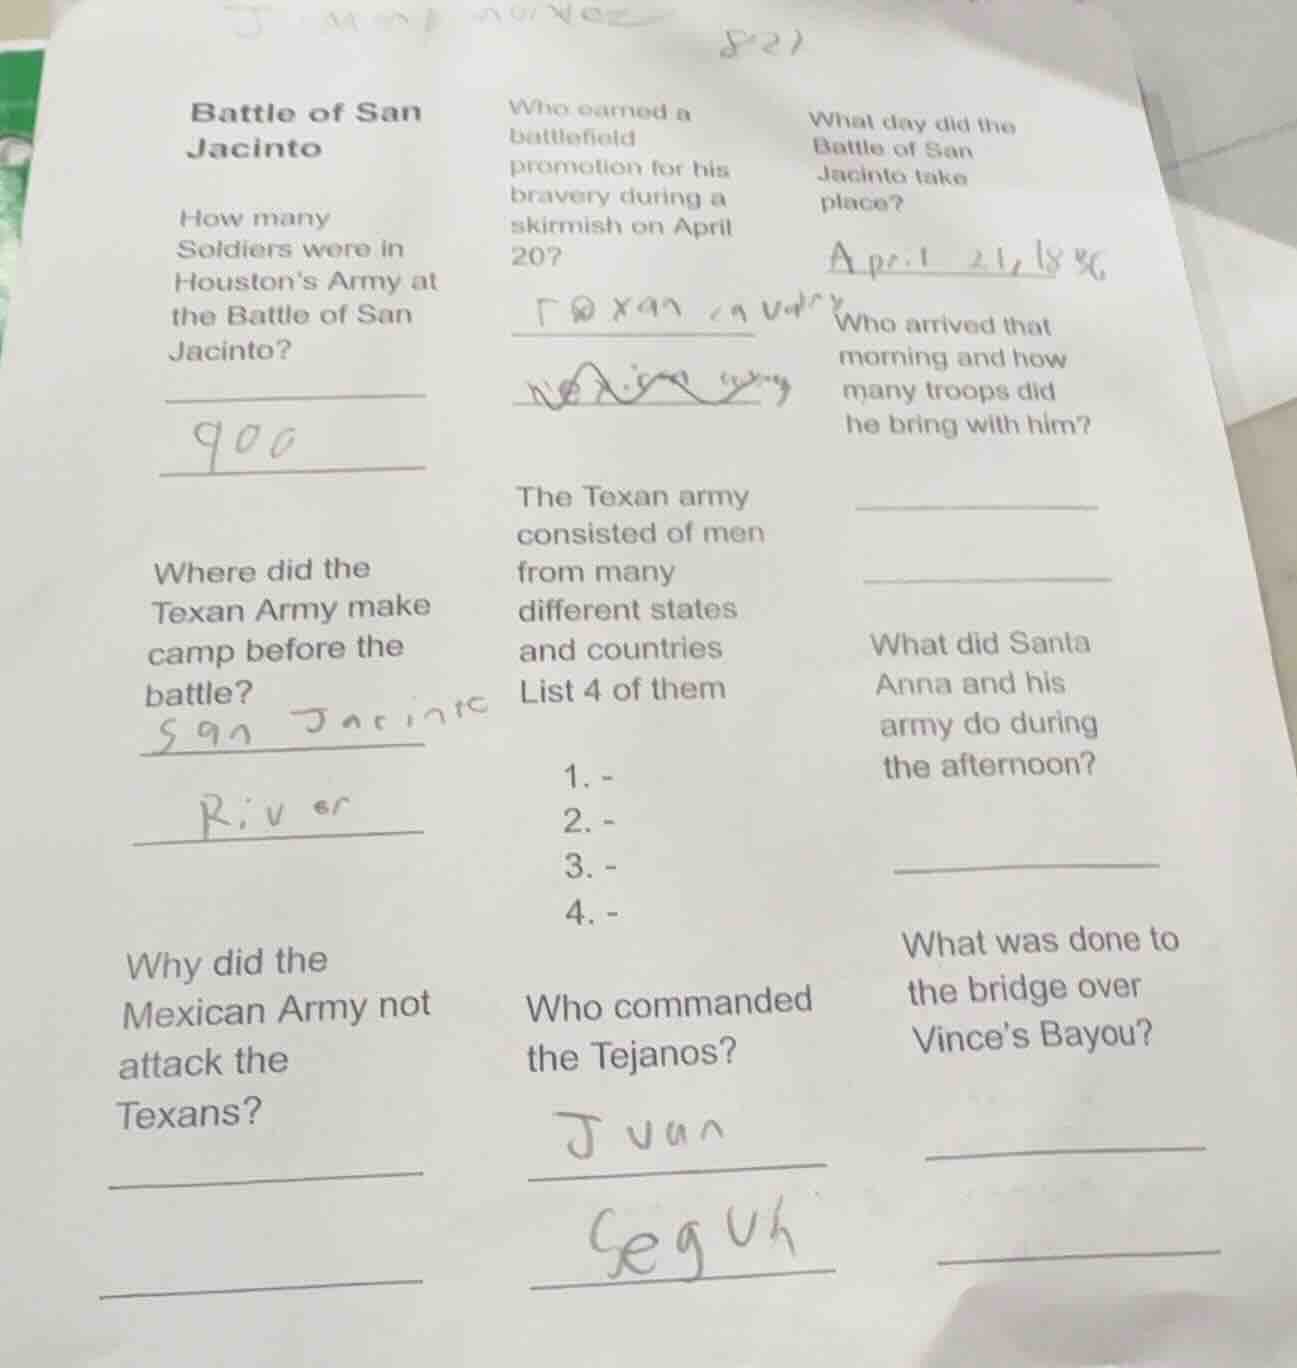 827
Battle of San
Jacinto
How many
Soldiers were in
Houston's Army at
the Battle of San
Jacinto?
900
Where did the
Texan Army make
camp before the
battle?
San Jacinto
River
Why did the
Mexican Army not
attack the
Texans?
Who earned a
battlefield
promotion for his
bravery during a
skirmish on April
20?
Texan cavalry
The Texan army
consisted of men
from many
different states
and countries
List 4 of them
1. -
2. -
3. -
4. -
Who commanded
the Tejanos?
Juan
Seguin
What day did the
Battle of San
Jacinto take
place?
April 21, 1836
Who arrived that
morning and how
many troops did
he bring with him?
What did Santa
Anna and his
army do during
the afternoon?
What was done to
the bridge over
Vince's Bayou?